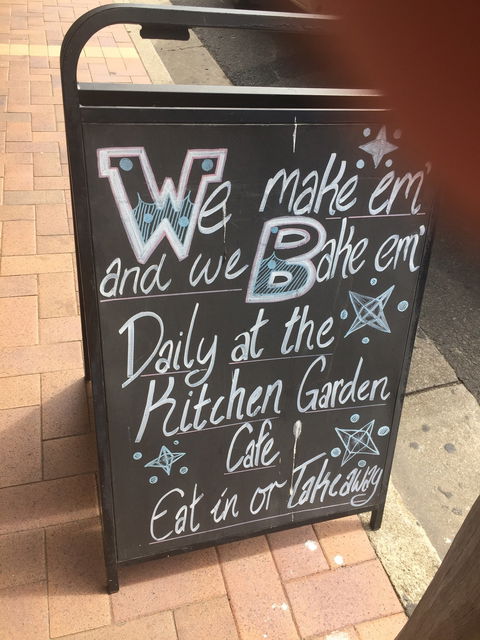 We make em'
and we Bake em'
Daily at the
Kitchen Garden
Cafe
Eat in or Takeaway